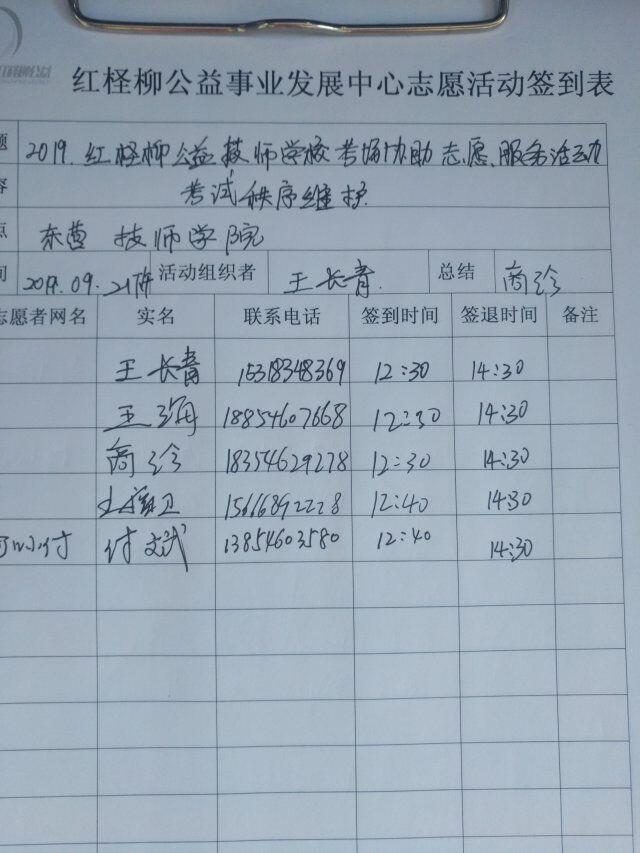 红柽柳公益事业发展中心志愿活动签到表
题 2019.红柽柳公益技师学校考场协助志愿服务活动
容 考试秩序维护
点 东营技师学院
间 2019.09.21 活动组织者 王长青 总结 商珍
志愿者网名 实名 联系电话 签到时间 签退时间 备注
王长青 15318348369 12:30 14:30
王海 18854607668 12:30 14:30
商珍 18354629278 12:30 14:30
卫 15616892228 12:40 14:30
小付 付文武 13854603580 12:40 14:30